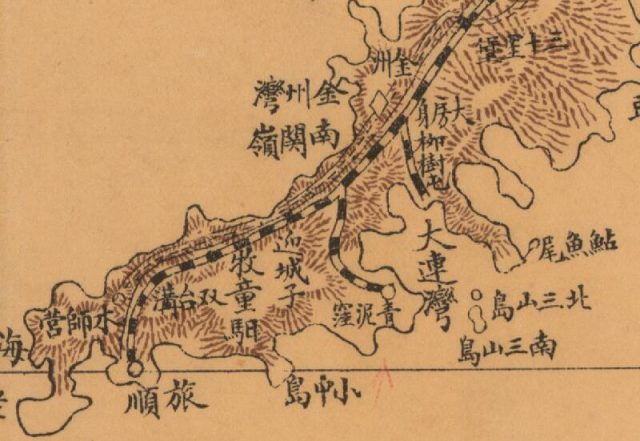 三十里堡
金州
金州灣
南關嶺
大房身
柳樹屯
大連灣
鮎魚尾
北三山島
南三山島
青泥窪
城子
牧童
双台溝
水師営
旅順
海